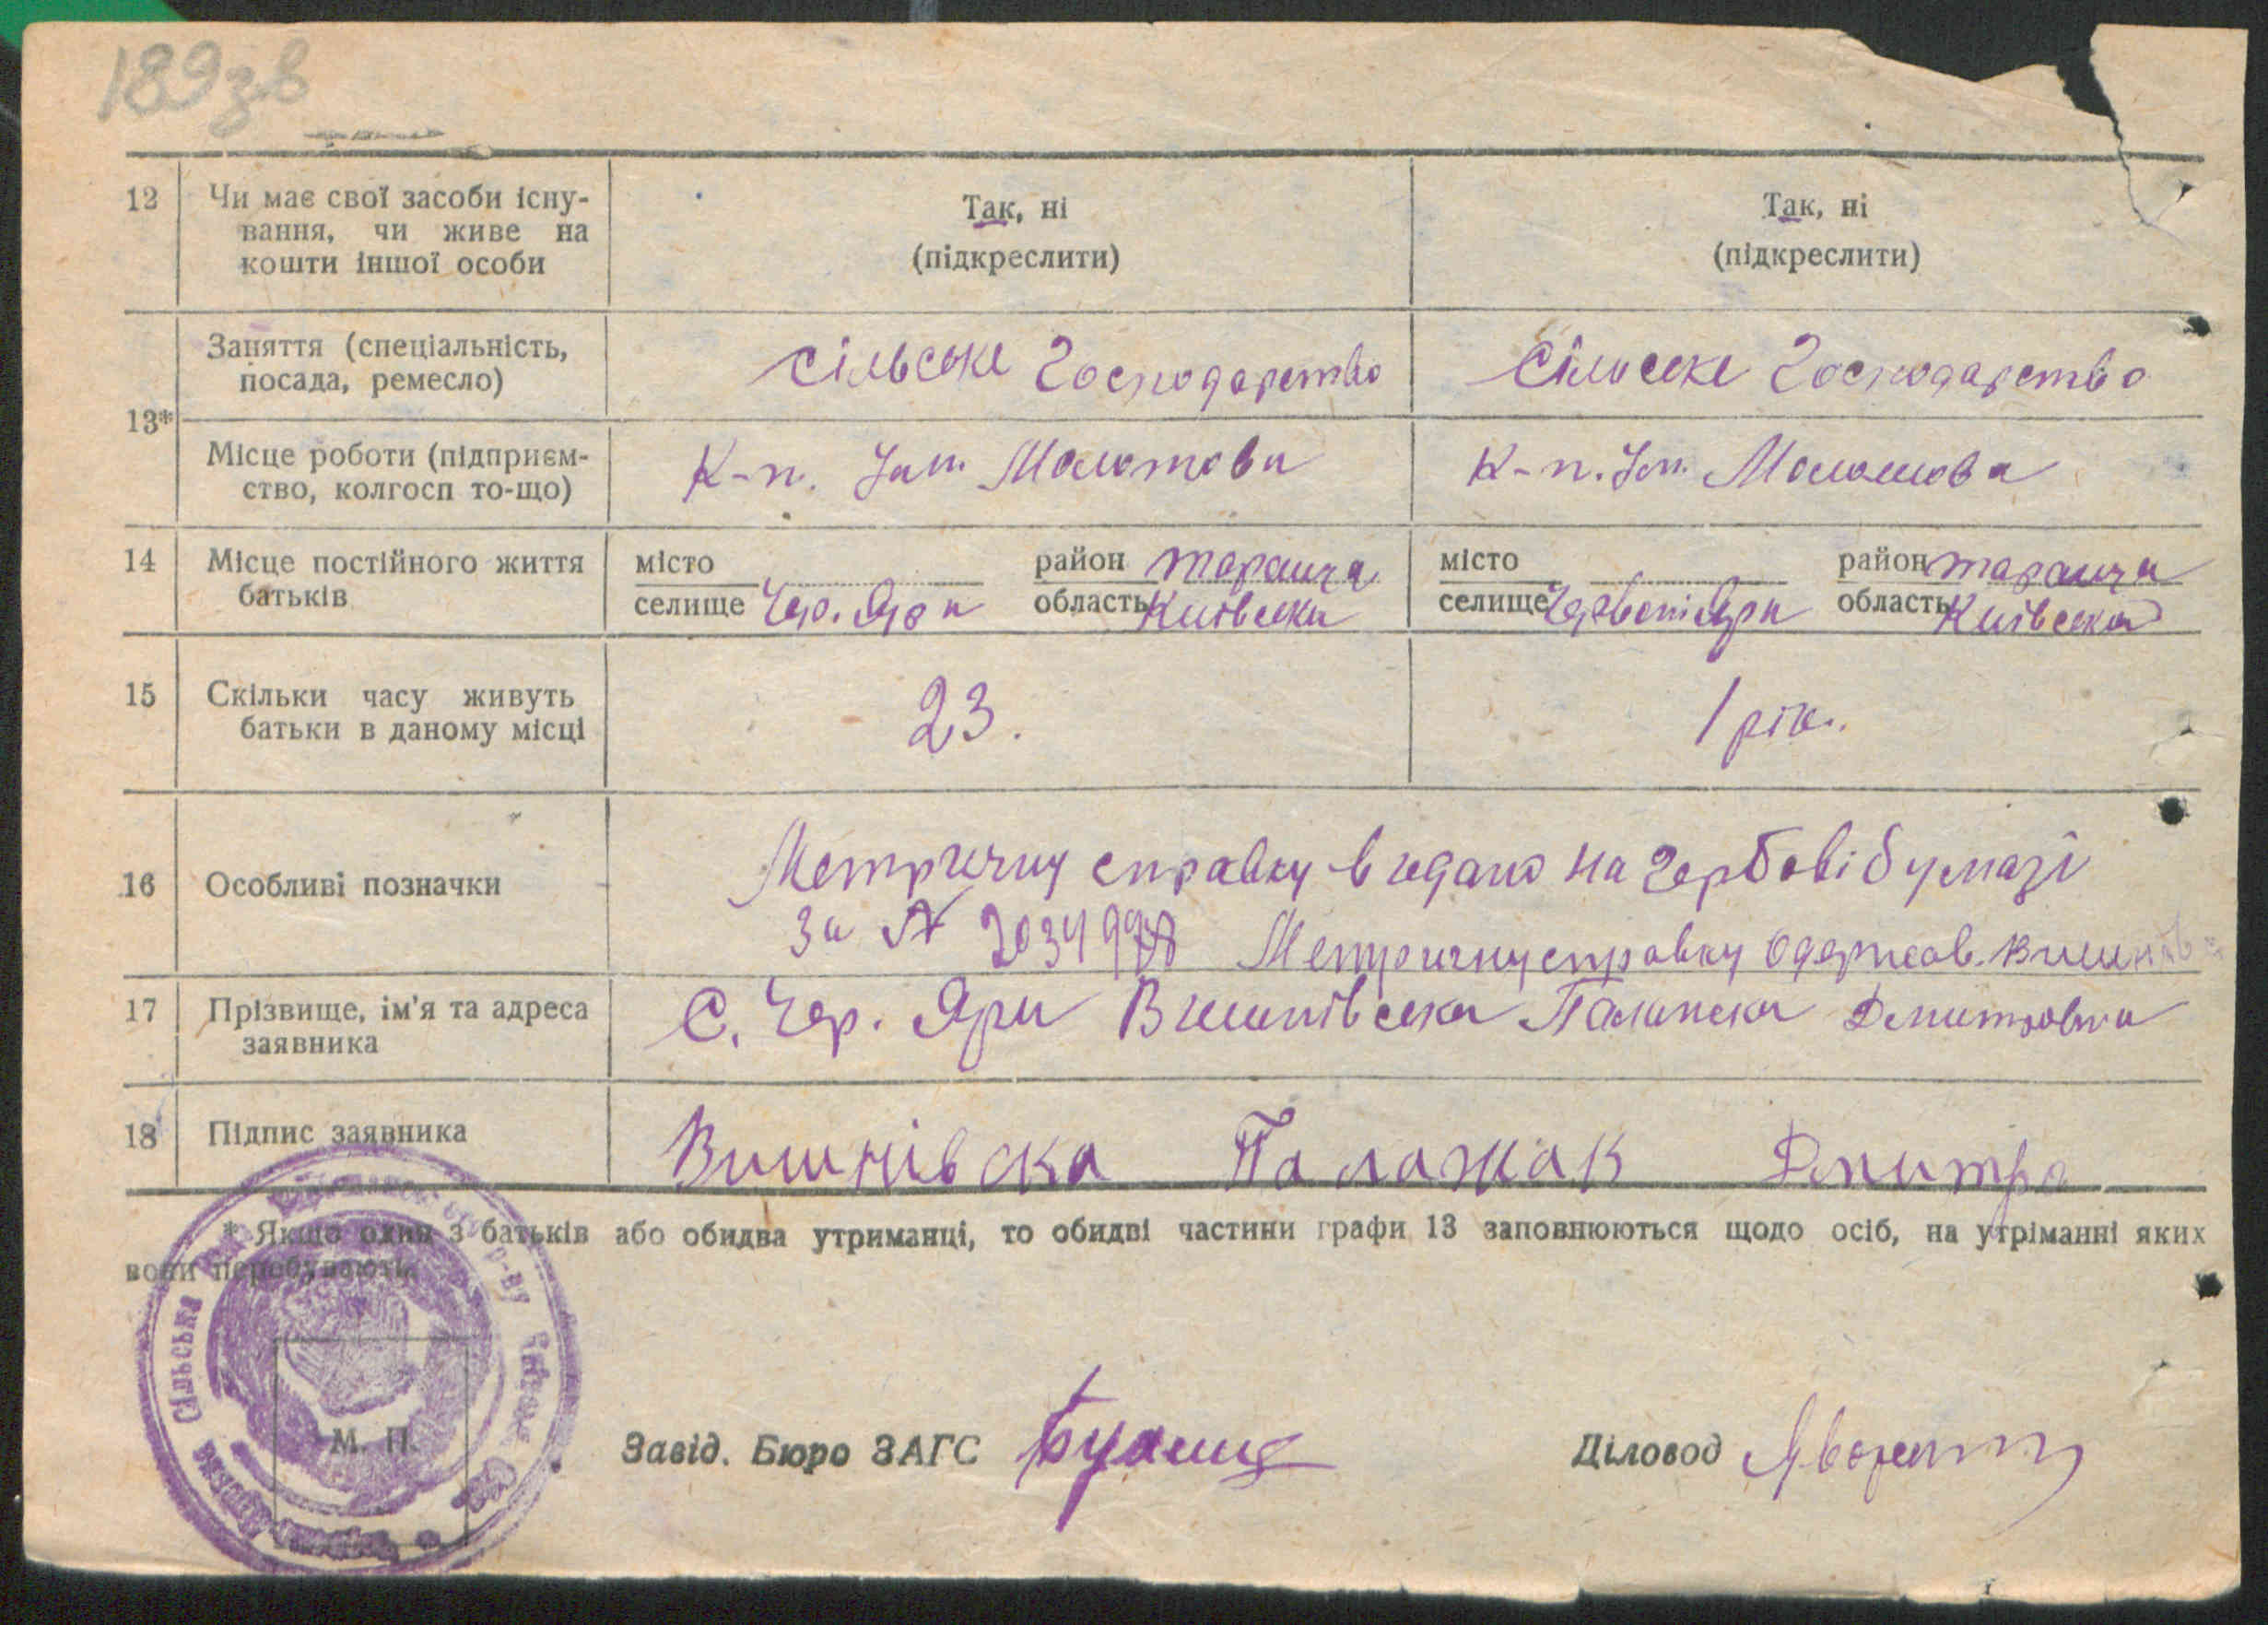 189зв
12 Чи має свої засоби існу- Так, ні Так, ні
вання, чи живе на
кошти іншої особи (підкреслити) (підкреслити)
13*
Заняття (спеціальність, сільське Господарство Сільське Господарство
посада, ремесло)
Місце роботи (підприєм- К-п. Ім. Молотова К-п. Ім. Молотова
ство, колгосп то-що)
14 Місце постійного життя місто район Тараща місто район Тараща
батьків селище Чер. Яри область Київська селище Червоні Яри область Київська
15 Скільки часу живуть 23. 1 рік.
батьки в даному місці
16 Особливі позначки Метричну справку видано на гербові бумазі
За № Метричну справку одержав.
17 Прізвище, ім'я та адреса С. Чер. Яри Вишнівська Дмитровна
заявника
18 Підпис заявника Вишнівска Палажак Дмитра
* Якщо один з батьків або обидва утриманці, то обидві частини графи 13 заповнюються щодо осіб, на утріманні яких
вони перебувають.
Сільська
М. П.
Завід. Бюро ЗАГС Діловод